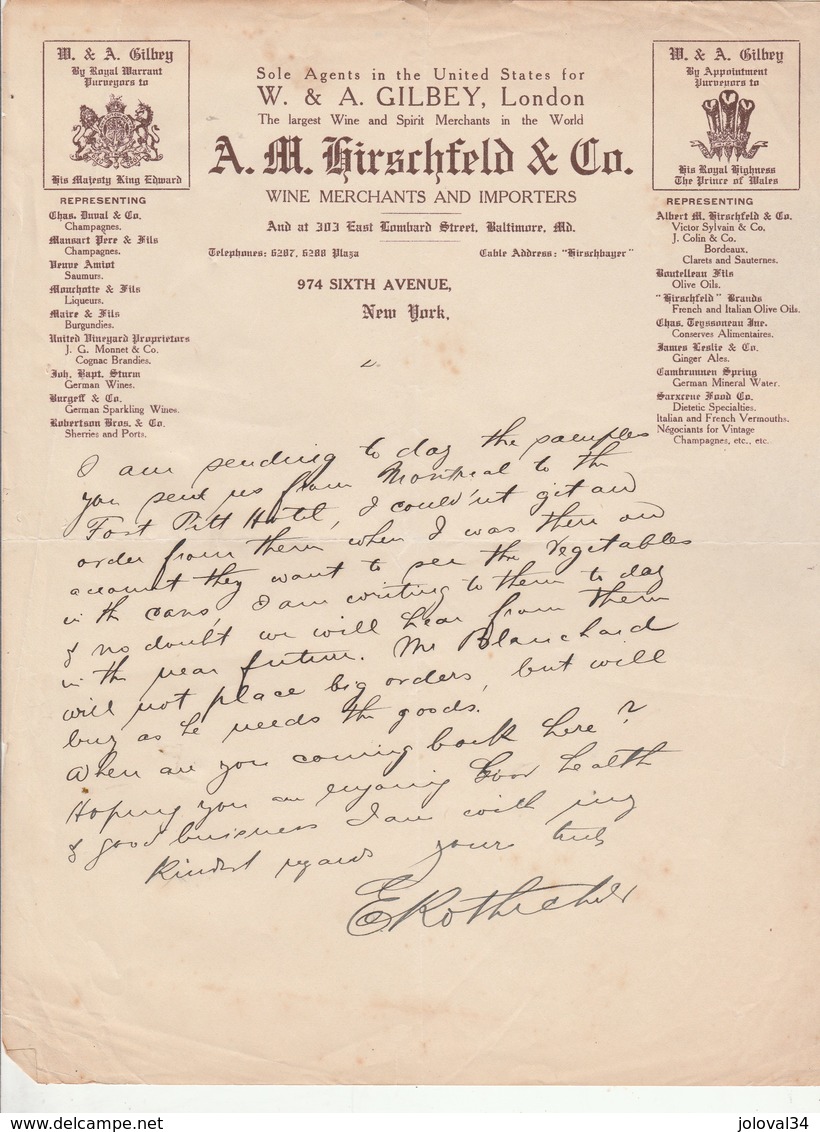 W. & A. Gilbey
By Royal Warrant
Purveyors to
His Majesty King Edward
REPRESENTING
Chas. Duval & Co.
Champagnes.
Mansart Pere & Fils
Champagnes.
Veuve Amiot
Saumurs.
Mouchotte & Fils
Liqueurs.
Maire & Fils
Burgundies.
United Vineyard Proprietors
J. G. Monnet & Co.
Cognac Brandies.
Joh. Bapt. Sturm
German Wines.
Burgeff & Co.
German Sparkling Wines.
Robertson Bros. & Co.
Sherries and Ports.
Sole Agents in the United States for
W. & A. GILBEY, London
The largest Wine and Spirit Merchants in the World
A. M. Hirschfeld & Co.
WINE MERCHANTS AND IMPORTERS
And at 303 East Lombard Street, Baltimore, Md.
Telephones: 6287, 6288 Plaza Cable Address: "Hirschbayer"
974 SIXTH AVENUE,
New York,
W. & A. Gilbey
By Appointment
Purveyors to
His Royal Highness
The Prince of Wales
REPRESENTING
Albert M. Hirschfeld & Co.
Victor Sylvain & Co.
J. Colin & Co.
Bordeaux.
Clarets and Sauternes.
Boutelleau Fils
Olive Oils.
"Hirschfeld" Brands
French and Italian Olive Oils.
Chas. Teyssoneau Jne.
Conserves Alimentaires.
James Leslie & Co.
Ginger Ales.
Cambrunnen Spring
German Mineral Water.
Sarxene Food Co.
Dietetic Specialties.
Italian and French Vermouths.
Négociants for Vintage
Champagnes, etc., etc.
I am sending to day the samples
you sent us from Montreal to the
Fort Pitt Hotel, I could'nt get an
order from them when I was there on
account they want to see the Vegetables
in the cans, I am writing to them to day
& no doubt we will hear from them
in the near future. Mr Blanchard
will not place big orders, but will
buy as he needs the goods.
When are you coming back here?
Hoping you are enjoying Good health
& good business I am with my
Kindest regards yours truly